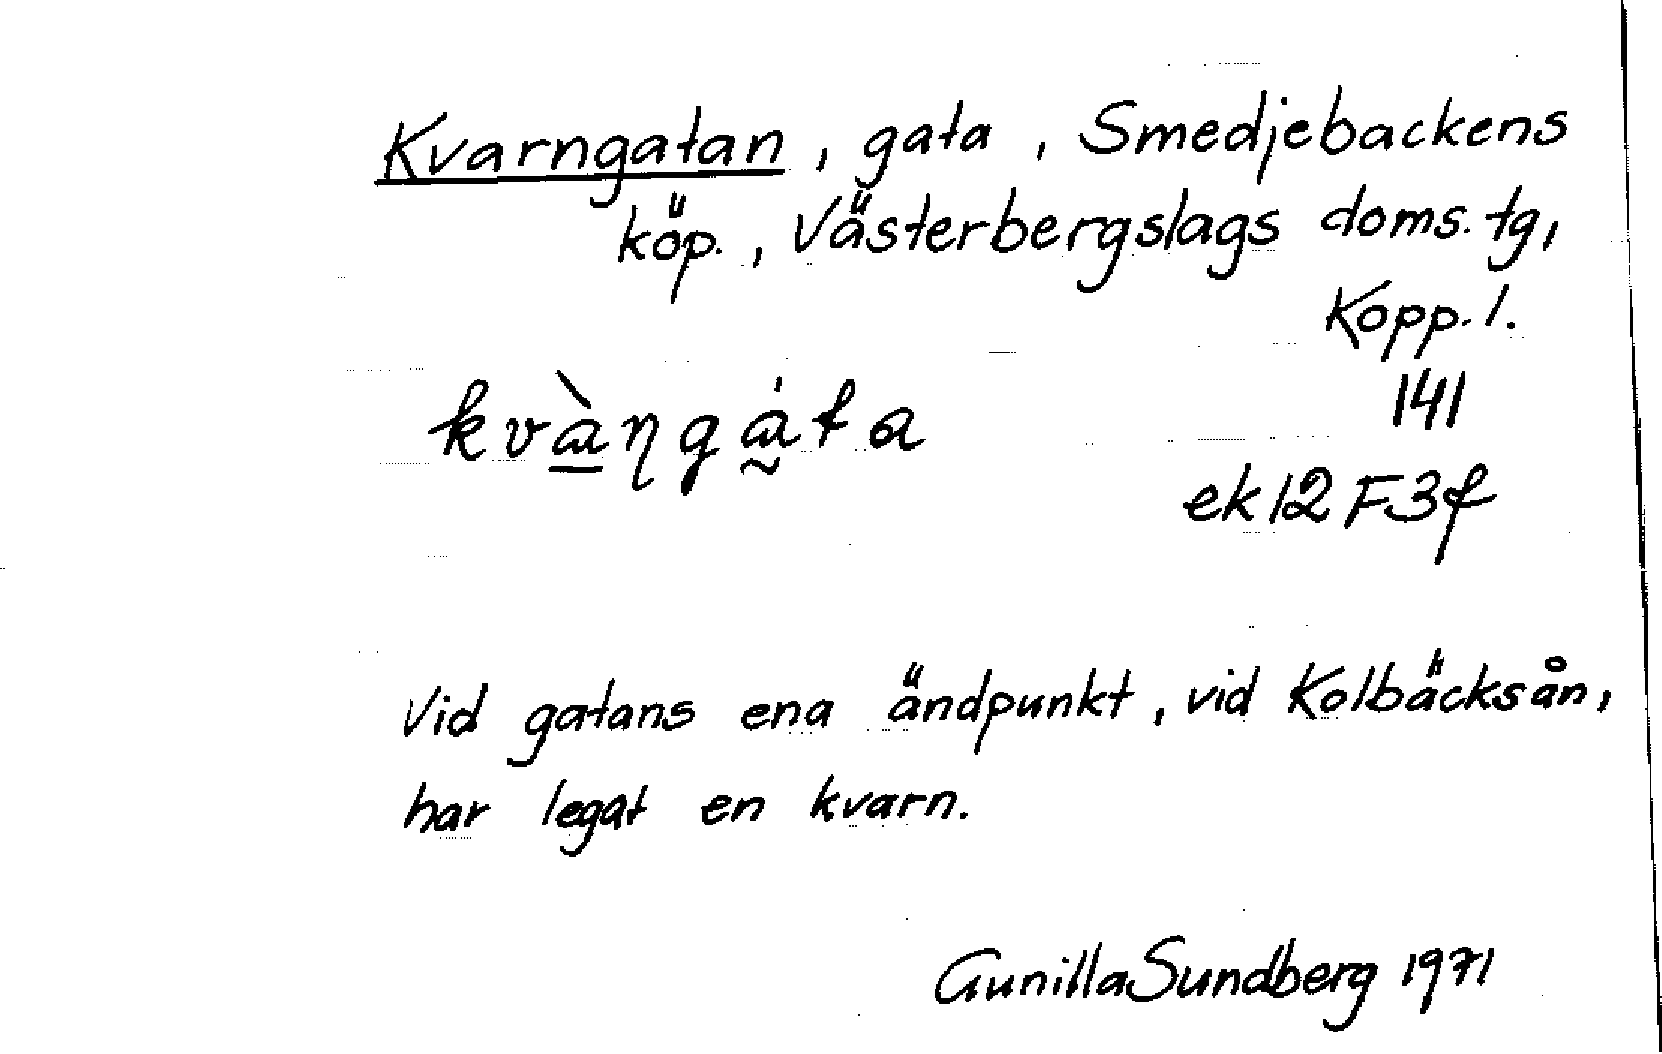 Kvarngatan, gata, Smedjebackens
köp., Västerbergslags doms.tg,
Kopp.l.
kvàŋgáta
141
ek12F3f
Vid gatans ena ändpunkt, vid Kolbäcksån,
har legat en kvarn.
Gunilla Sundberg 1971